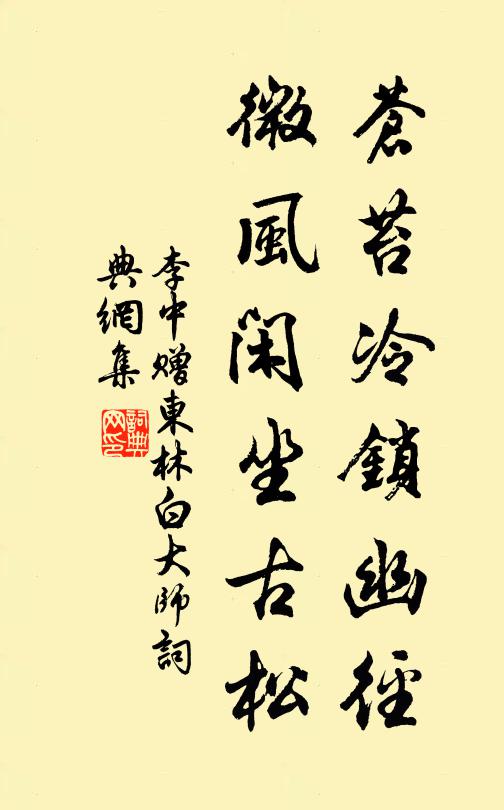 蒼苔冷鎖幽徑
微風閑坐古松
李中贈東林白大師詞
典網集
詞典网印